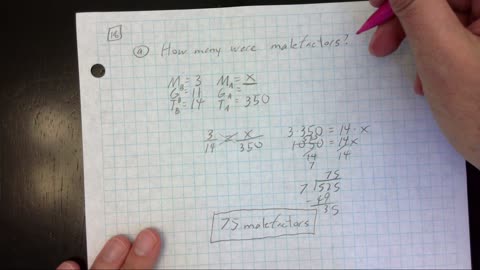 16
a How many were malefactors?
M_B = 3 M_A = x
G_B = 11 G_A =
T_B = 14 T_A = 350
3/14 = x/350
3·350 = 14·x
1050 = 14x
14 14
7
75
7)525
-49
35
75 malefactors